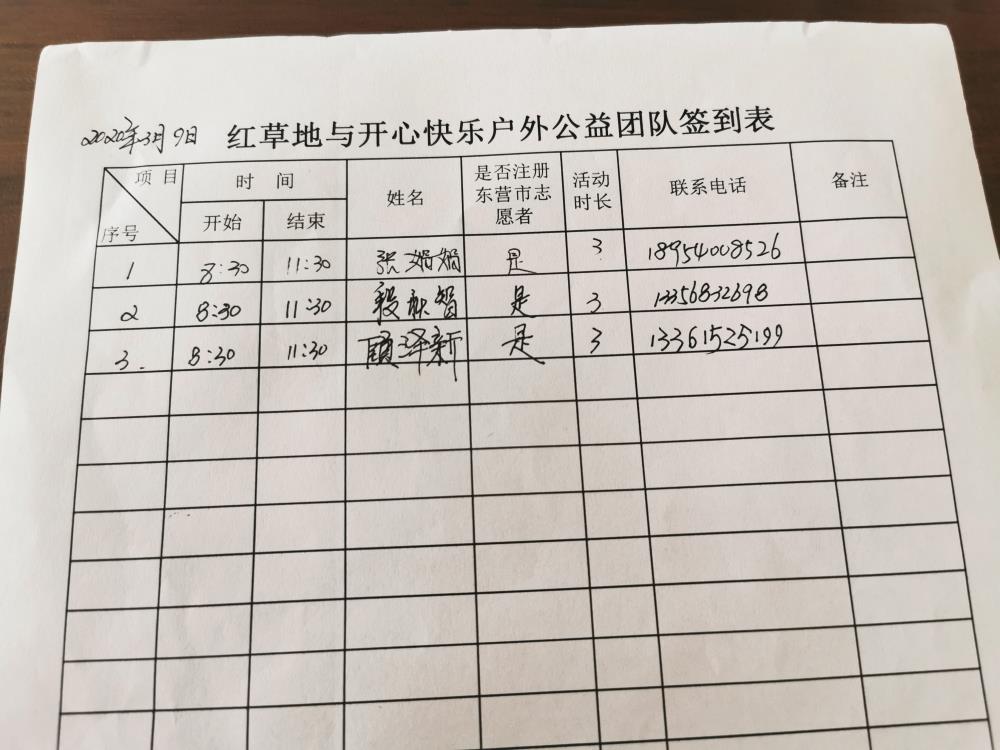 2022年3月9日 红草地与开心快乐户外公益团队签到表
项目 时间 姓名 是否注册东营市志愿者 活动时长 联系电话 备注
序号 开始 结束
1 8:30 11:30 张娟娟 是 3 18954008526
2 8:30 11:30 是 3 13356832698
3. 8:30 11:30 顾泽新 是 3 13361525199